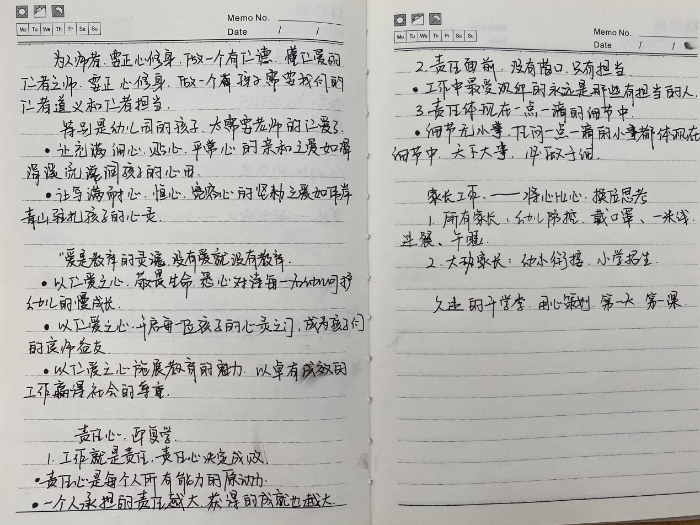 Memo No.
Mo Tu We Th Fr Sa Su
Date / /
为人师者,要正心修身,做一个有仁德、懂仁爱的
仁者之师,要正心修身,做一个有孩子需要我们的
仁者道义和仁者担当.
特别是幼儿园的孩子,太需要老师的仁爱了.
• 让充满细心、贴心、平常心的亲和之爱如
润孩子的心田.
• 让写满耐心、恒心、宽容心的坚韧之爱如
青山 孩子的心灵.
"爱是教育的灵魂,没有爱就没有教育.
• 以仁爱之心,敬畏生命,悉心对待每一 幼儿呵护
幼儿的慢成长.
• 以仁爱之心,开启每一位孩子的心灵之门,成为孩子们
的良师益友
• 以仁爱之心施展教育的魅力,以卓有成效的
工作赢得社会的尊重.
责任心、即
1. 工作就是责任,责任心决定成败.
• 责任心是每个人所有能力的原动力.
• 一个人承担的责任越大,获得的成就也越大
Memo No.
Mo Tu We Th Fr Sa Su
Date / /
2. 责任面前,没有借口,只有担当.
• 工作中最受欢迎的永远是那些有担当的人.
3. 责任体现在一点一滴的细节中.
• 细节无小事,任何一点一滴的小事都体现在
细节中,天下大事,必做于细.
家长工作、——将心比心,换位思考
1. 所有家长:幼儿防控、戴口罩、一米线、
进餐、午睡.
2. 大班家长:幼小衔接、小学招生.
久违的开学季,用心策划,第一天,第一课